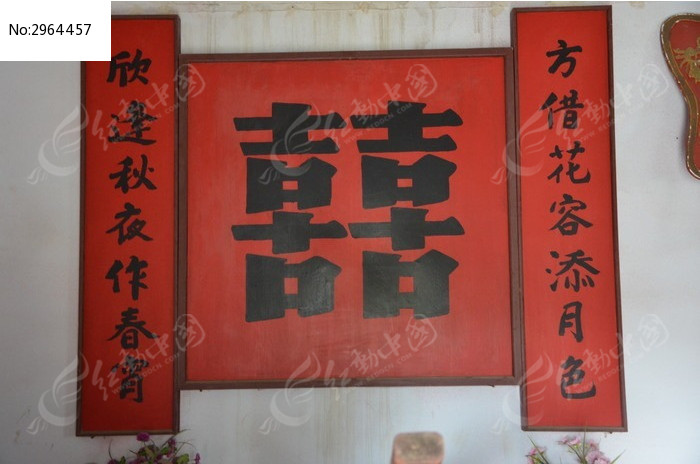 No:2964457
方借花容添月色
囍
欣逢秋夜作春宵
红动中国